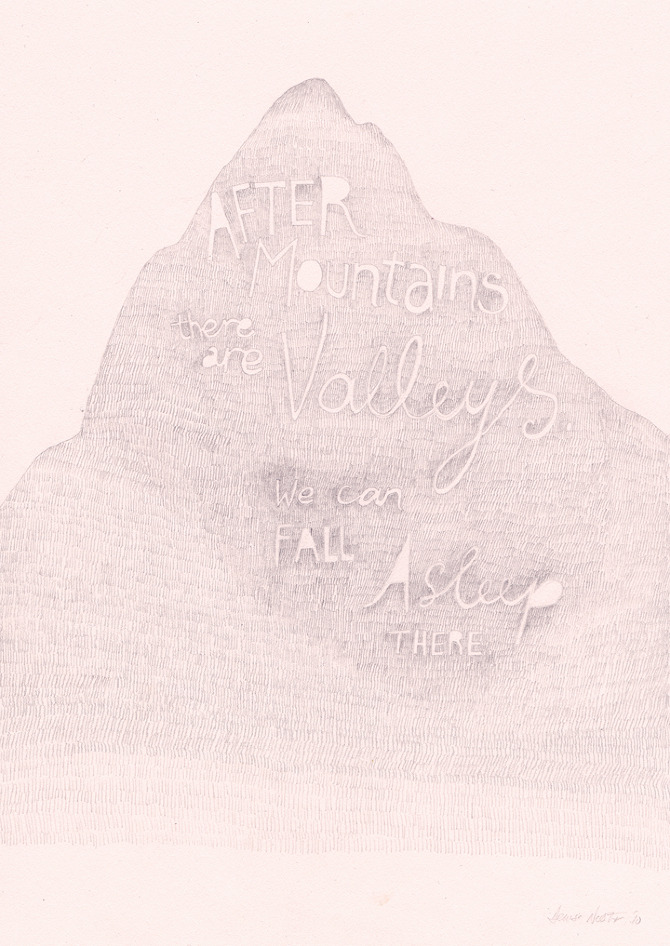 AFTER
Mountains
there
are Valleys
We can
FALL
Asleep
THERE